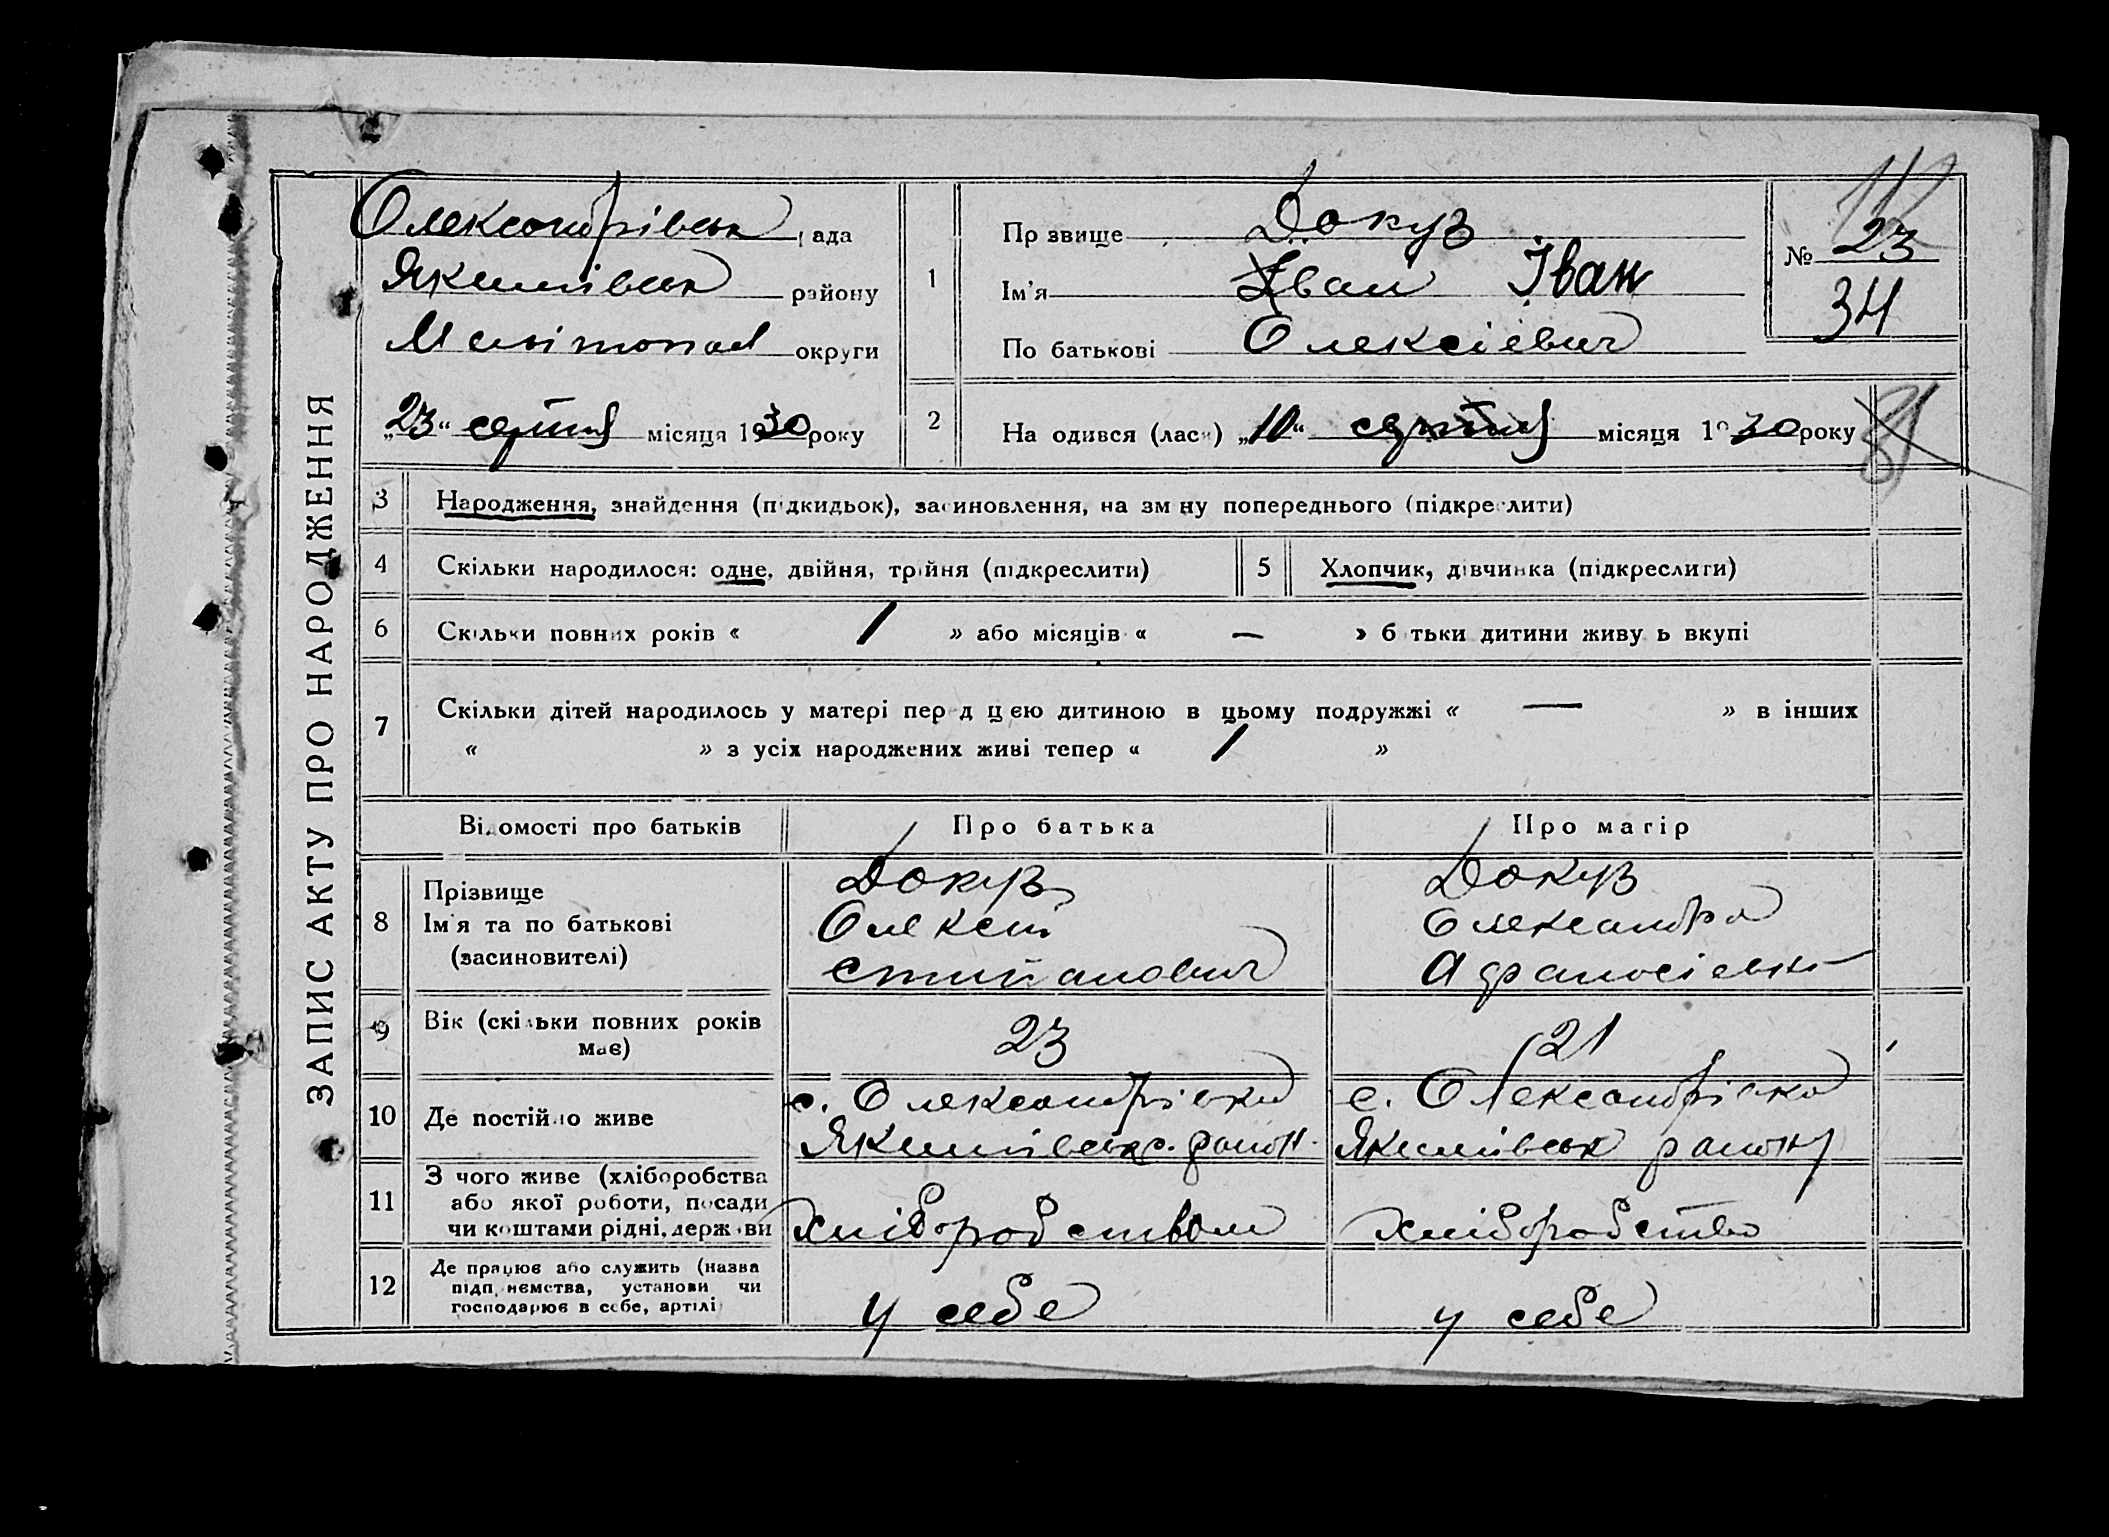 ЗАПИС АКТУ ПРО НАРОДЖЕННЯ
Олександрівськ рада
Якимівськ району
Мелітопол округи
„23“ серпня місяця 1930 року
1
Прізвище Докуз
Ім'я Іван Іван
По батькові Олексієвич
№ 23
34
2 Народився (лася) „10“ серпня місяця 1930 року
81
3 Народження, знайдення (підкидьок), засиновлення, на зміну попереднього (підкреслити)
4 Скільки народилося: одне, двійня, трійня (підкреслити)
5 Хлопчик, дівчинка (підкреслити)
6 Скільки повних років « 1 » або місяців « — » батьки дитини живуть вкупі
7 Скільки дітей народилось у матері перед цією дитиною в цьому подружжі « — » в інших
« » з усіх народжених живі тепер « 1 »
Відомості про батьків Про батька Про матір
8 Прізвище
Ім'я та по батькові
(засиновителі)
Докуз
Олексій
Докуз
Олександра
9 Вік (скільки повних років
має)
23
21
10 Де постійно живе
с. Олександрівка
Якимівськ. район
с. Олександрівка
Якимівськ району
11 З чого живе (хліборобства
або якої роботи, посади
чи коштами рідні, держави
хліборобством
хліборобство
12 Де працює або служить (назва
підприємства, установи чи
господарює в себе, артілі
у себе
у себе